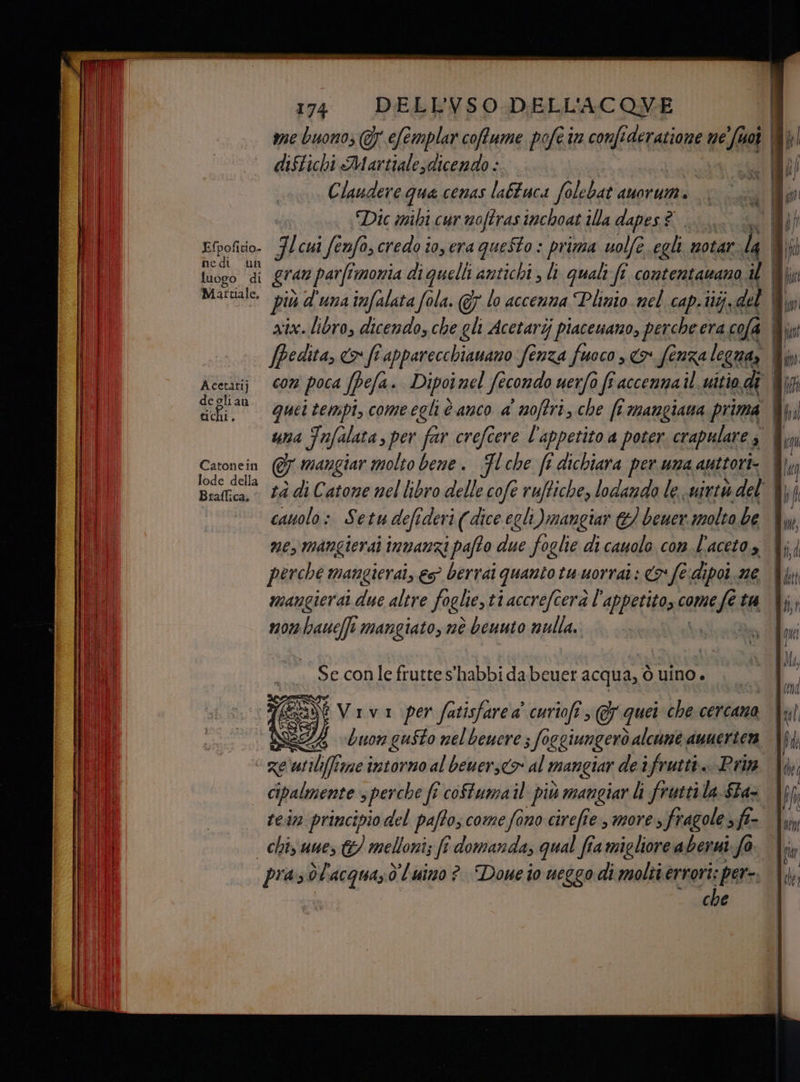 174 DELL'VSO DELL'ACQVE
me buono, & eſemplar coſtume poſe in conſideratione ne' ſuoi
diſtichi Martiale, dicendo:
Claudere quæ cenas lattuca ſolebat auorum.
Dic mihi cur noſtras inchoat illa dapes?
Eſpoſitio-
ne di un
luogo di
Martiale.
Il cui ſenſo, credo io, era queſto: prima uolſe egli notar la
gran parſimonia di quelli antichi, li quali ſi contentauano il
più d'una inſalata ſola. & lo accenna Plinio nel cap. iiij. del
xix. libro, dicendo, che gli Acetarij piaceuano, perche era coſa
ſpedita, & ſi apparecchiauano ſenza fuoco, & ſenza legna,
Acetarij
de gli an
tichi.
con poca ſpeſa. Dipoi nel ſecondo uerſo ſi accenna il uitio di
quei tempi, come egli è anco a' noſtri, che ſi mangiaua prima
una Inſalata, per far creſcere l'appetito a poter crapulare,
Catone in
lode della
Braſſica.
& mangiar molto bene. Il che ſi dichiara per una auttori-
tà di Catone nel libro delle coſe ruſtiche, lodando le uirtù del
cauolo: Se tu deſideri (dice egli) mangiar & beuer molto be
ne, mangierai innanzi paſto due foglie di cauolo con l'aceto,
perche mangierai, & berrai quanto tu uorrai: & ſe dipoi ne
mangierai due altre foglie, ti accreſcerà l'appetito, come ſe tu
non haueſſi mangiato, nè beuuto nulla.
Se con le frutte s'habbi da beuer acqua, ò uino.
Vivi per ſatisfare a' curioſi, & quei che cercano
buon guſto nel beuere; ſoggiungerò alcune auuerten
ze utiliſſime intorno al beuer, & al mangiar de i frutti. Prin
cipalmente, perche ſi coſtuma il più mangiar li frutti la ſta-
te in principio del paſto, come ſono cireſie, more, fragole, fi-
chi, uue, & melloni; ſi domanda, qual ſia migliore a berui ſo
pra, ò l'acqua, ò l'uino? Doue io ueggo di molti errori: per-
che